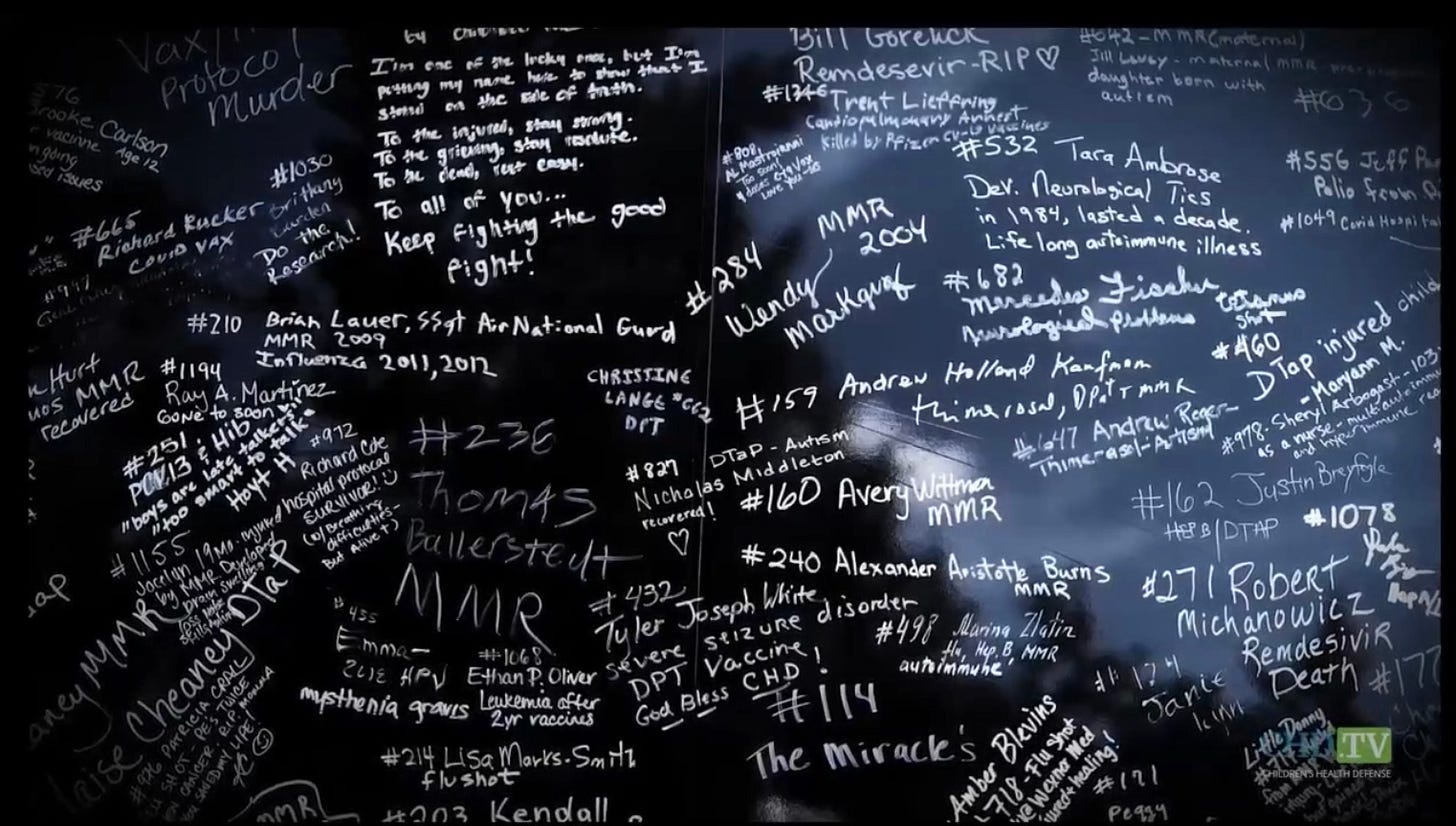 Vax/
Protocol
Murder
I'm one of the lucky ones, but I'm
putting my name here to show that I
stand on the side of truth.
To the injured, stay strong.
To the grieving, stay resolute.
To the dead, rest easy.
To all of you...
Keep fighting the good
fight!
Bill Gorelick
Remdesevir-RIP♡
#1346 Trent Lieffring
Cardiopulmonary Arrest
Killed by Pfizer CV-19 vaccines
#642-MMR (maternal)
daughter born with
autism
#636
#576
Brooke Carlson
vaccine Age 12
ongoing
issues
#1030
Brittany
Do the
Research!
#665
Richard Rucker
COVID VAX
#808
Al Mastroianni
Too soon!
Love you
#532 Tara Ambrose
Dev. Neurological Tics
in 1984, lasted a decade.
Life long autoimmune illness
#556 Jeff
Polio from
#1049 Covid Hospital
MMR
2004
#284
Wendy
Markgraf
#682
Mercedes Fischer
Neurological problems
tetanus
shot
#210 Brian Lauer, SSgt Air National Gurd
MMR 2009
Influenza 2011, 2012
Hurt
MMR
recovered
#1194
Ray A. Martinez
Gone to soon
#251
PCV13 & Hib
"boys are late talkers"
"too smart to talk"
Hoyt H
#972
Richard Cote
hospital protocol
SURVIVOR!
(w/ Breathing
difficulties-
But Alive!)
CHRISTINE
LANGE #662
DPT
#159 Andrew Holland Kaufman
thimerosal, DPaT + MMR
#460
DTap injured child
-Maryann M.
#647 Andrew Roger-
Thimerasol-Autism
#978-Sheryl Arbogast-
as a nurse-multi autoimmune
and hyper immune
#236
Thomas
Ballerstedt
MMR
#827 DTaP-Autism
Nicholas Middleton
recovered!
♡
#160 Avery Wittman
MMR
#162 Justin Breyfogle
HEP B/DTAP
#1078
#1155
Jocelyn 19mo. injured
by MMR Developed
brain swelling
loss
skills
MMR
Cheaney DTaP
#240 Alexander Aristotle Burns
MMR
#271 Robert
Michanowicz
Remdesivir
Death
#435
Emma-
HPV
mysthenia gravis
#1068
Ethan P. Oliver
Leukemia after
2yr vaccines
#432
Tyler Joseph White
severe seizure disorder
DPT Vaccine
God Bless CHD!
#498 Marina Zlatin
flu, Hep. B, MMR
autoimmune
PATRICIA
FLU SHOT
TWICE
CANCER. R.I.P
MY LIFE!
#214 Lisa Marks-Smith
flu shot
#114
The Mirack's
#174
Janie
#177
Amber Blevins
718-Flu shot
healing!
#171
Peggy
Little Danny
MMR
#203 Kendall
.TV
CHILDREN'S HEALTH DEFENSE